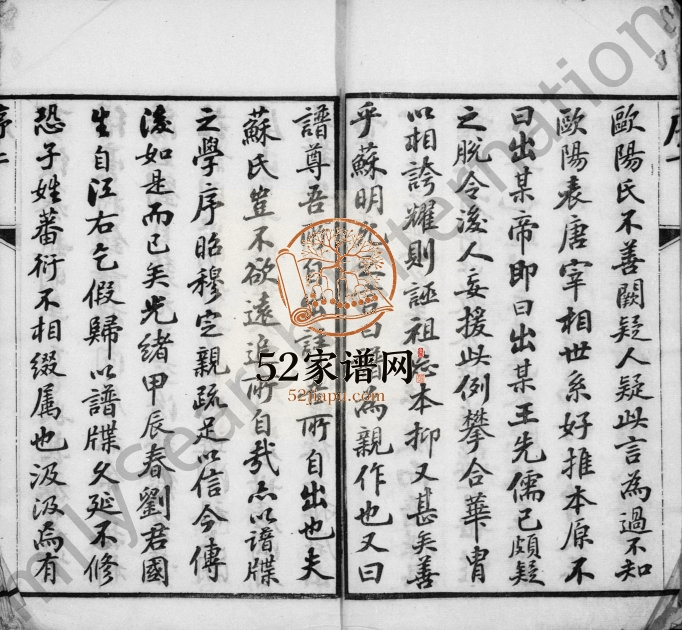 歐陽氏不善闕疑人疑此言為過不知
歐陽表唐宰相世系好推本原不
曰出某帝即曰出某王先儒已頗疑
之脫令後人妄援此例攀合華冑
以相誇耀則誣祖忘本抑又甚矣善
乎蘇明言曰為親作也又曰
譜尊吾自出所自出也夫
蘇氏豈不欲遠追所自哉亦以譜牒
之學序昭穆定親疏足以信今傳
後如是而已矣光緒甲辰春劉君國
生自江右乞假歸以譜牒久延不修
恐子姓蕃衍不相綴属也汲汲焉有
52家谱网
52jiapu.com
milySearch International